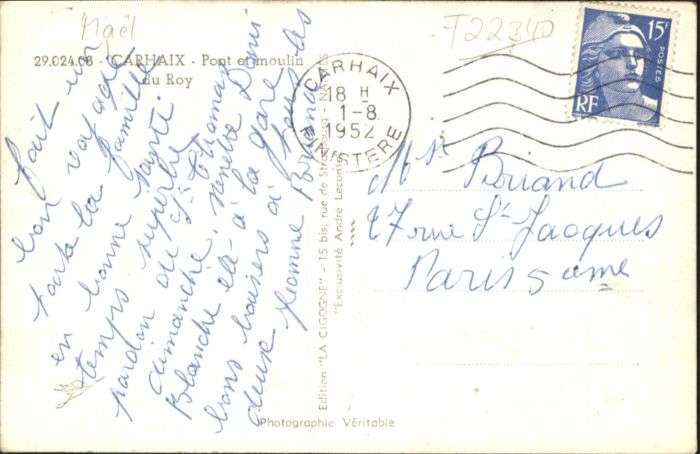 Maël
F22340
29.024.08 - CARHAIX - Pont et moulin
du Roy
15F
POSTES
RF
CARHAIX
18 H
1-8
1952
FINISTERE
fait un
bon voyage
toute la famille
en bonne santé
temps superbe
pardon de St
dimanche,
Blanche à la gare
bons baisers à tous les
deux Jeanne
Edition "LA CIGOGNE" - 15 bis, rue de
"Exclusivité André Leconte"
Photographie Véritable
Mr Briand
27 rue St-Jacques
Paris 5ème